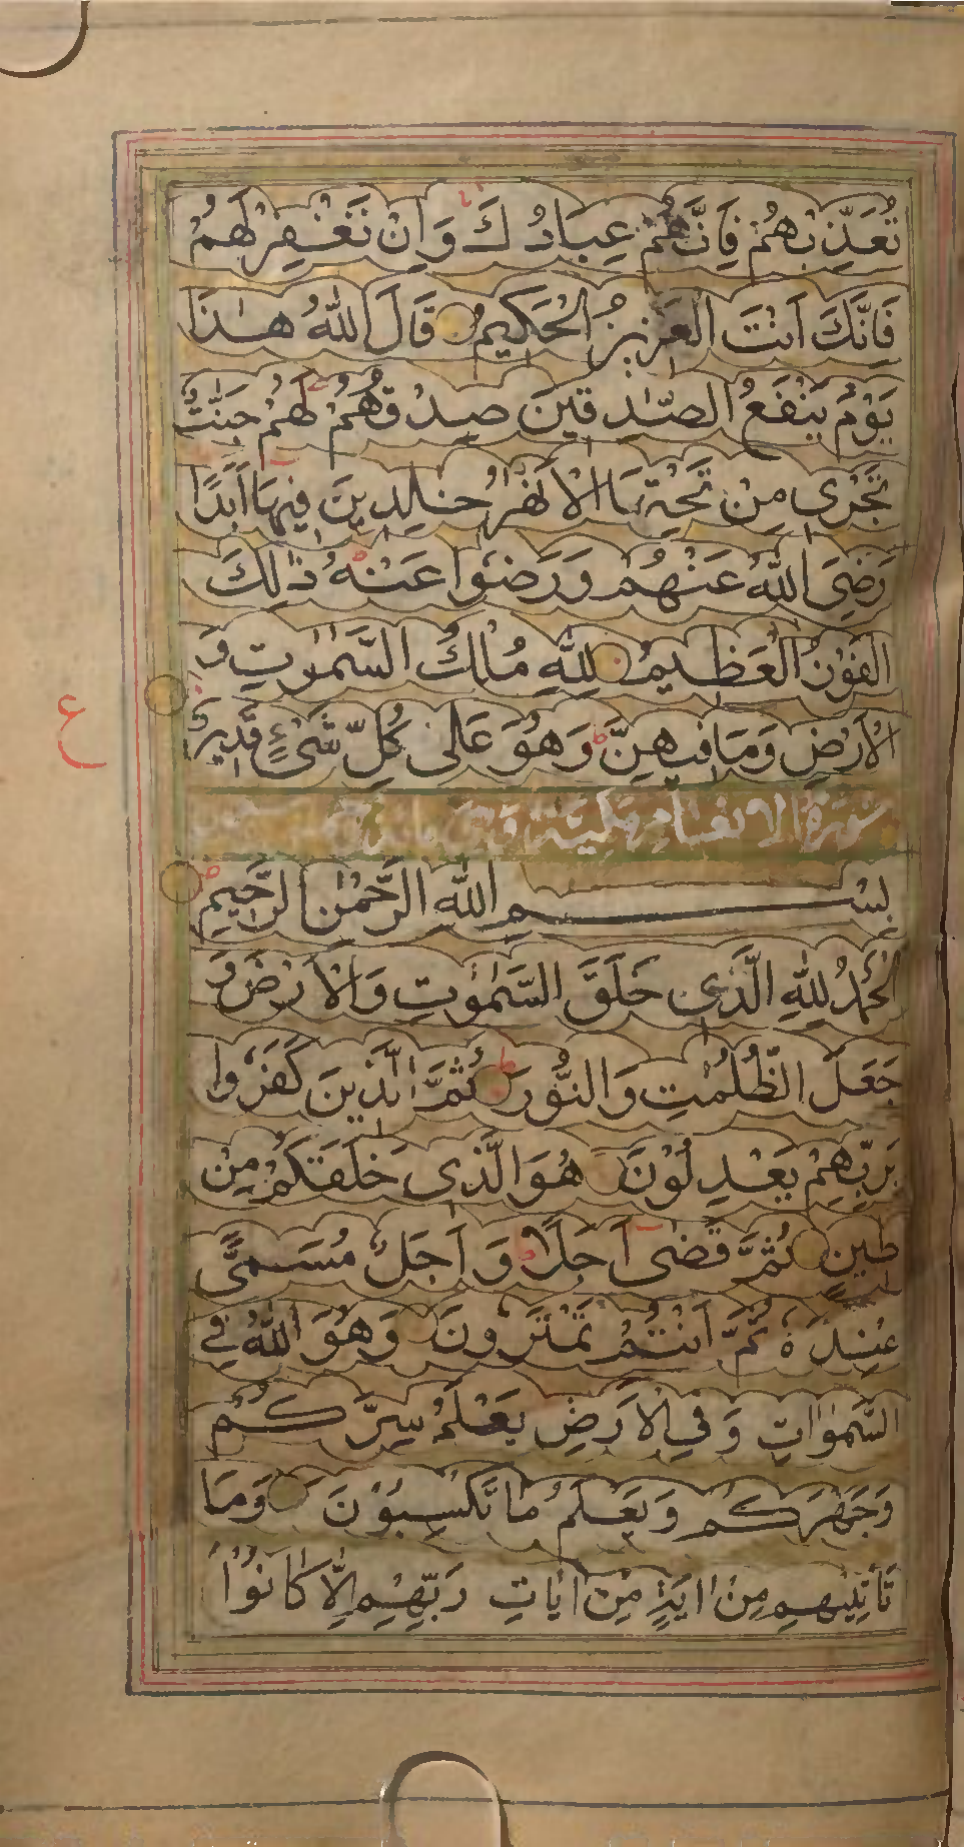 تُعَذِّبْهُمْ فَاِنَّهُمْ عِبَادُكَ وَاِنْ تَغْفِرْ لَهُمْ
فَاِنَّكَ اَنْتَ الْعَزِيزُ الْحَكِيمُ قَالَ اللّٰهُ هٰذَا
يَوْمُ يَنْفَعُ الصّٰدِقِينَ صِدْقُهُمْ لَهُمْ جَنّٰتٌ
تَجْرِى مِنْ تَحْتِهَا الْاَنْهٰرُ خٰلِدِينَ فِيهَا اَبَدًا
رَضِىَ اللّٰهُ عَنْهُمْ وَرَضُوا عَنْهُ ذٰلِكَ
الْفَوْزُ الْعَظِيمُ لِلّٰهِ مُلْكُ السَّمٰوٰتِ وَ
الْاَرْضِ وَمَا فِيهِنَّ وَهُوَ عَلٰى كُلِّ شَىْءٍ قَدِيرٌ
ع
سورة الانعام مكية
بِسْمِ اللّٰهِ الرَّحْمٰنِ الرَّحِيمِ
اَلْحَمْدُ لِلّٰهِ الَّذِى خَلَقَ السَّمٰوٰتِ وَالْاَرْضَ وَ
جَعَلَ الظُّلُمٰتِ وَالنُّورَ ثُمَّ الَّذِينَ كَفَرُوا
بِرَبِّهِمْ يَعْدِلُونَ هُوَ الَّذِى خَلَقَكُمْ مِنْ
طِينٍ ثُمَّ قَضٰى اَجَلًا وَ اَجَلٌ مُسَمًّى
عِنْدَهُ ثُمَّ اَنْتُمْ تَمْتَرُونَ وَهُوَ اللّٰهُ فِى
السَّمٰوَاتِ وَفِى الْاَرْضِ يَعْلَمُ سِرَّكُمْ
وَجَهْرَكُمْ وَيَعْلَمُ مَا تَكْسِبُونَ وَمَا
تَأْتِيهِمْ مِنْ اٰيَةٍ مِنْ اٰيَاتِ رَبِّهِمْ اِلَّا كَانُوا